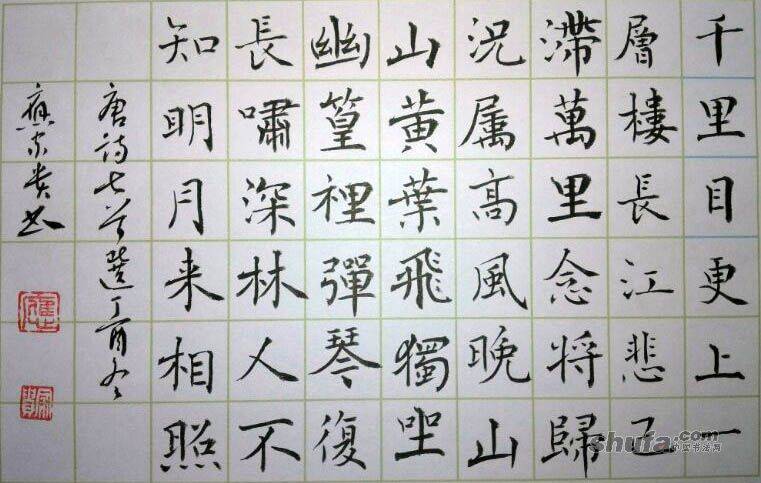 千里目更上一
層樓長江悲已
滯萬里念將歸
況属高風晚山
山黄葉飛獨坐
幽篁裡彈琴復
長嘯深林人不
知明月来相照
唐詩七首選丁酉冬
shufa.com